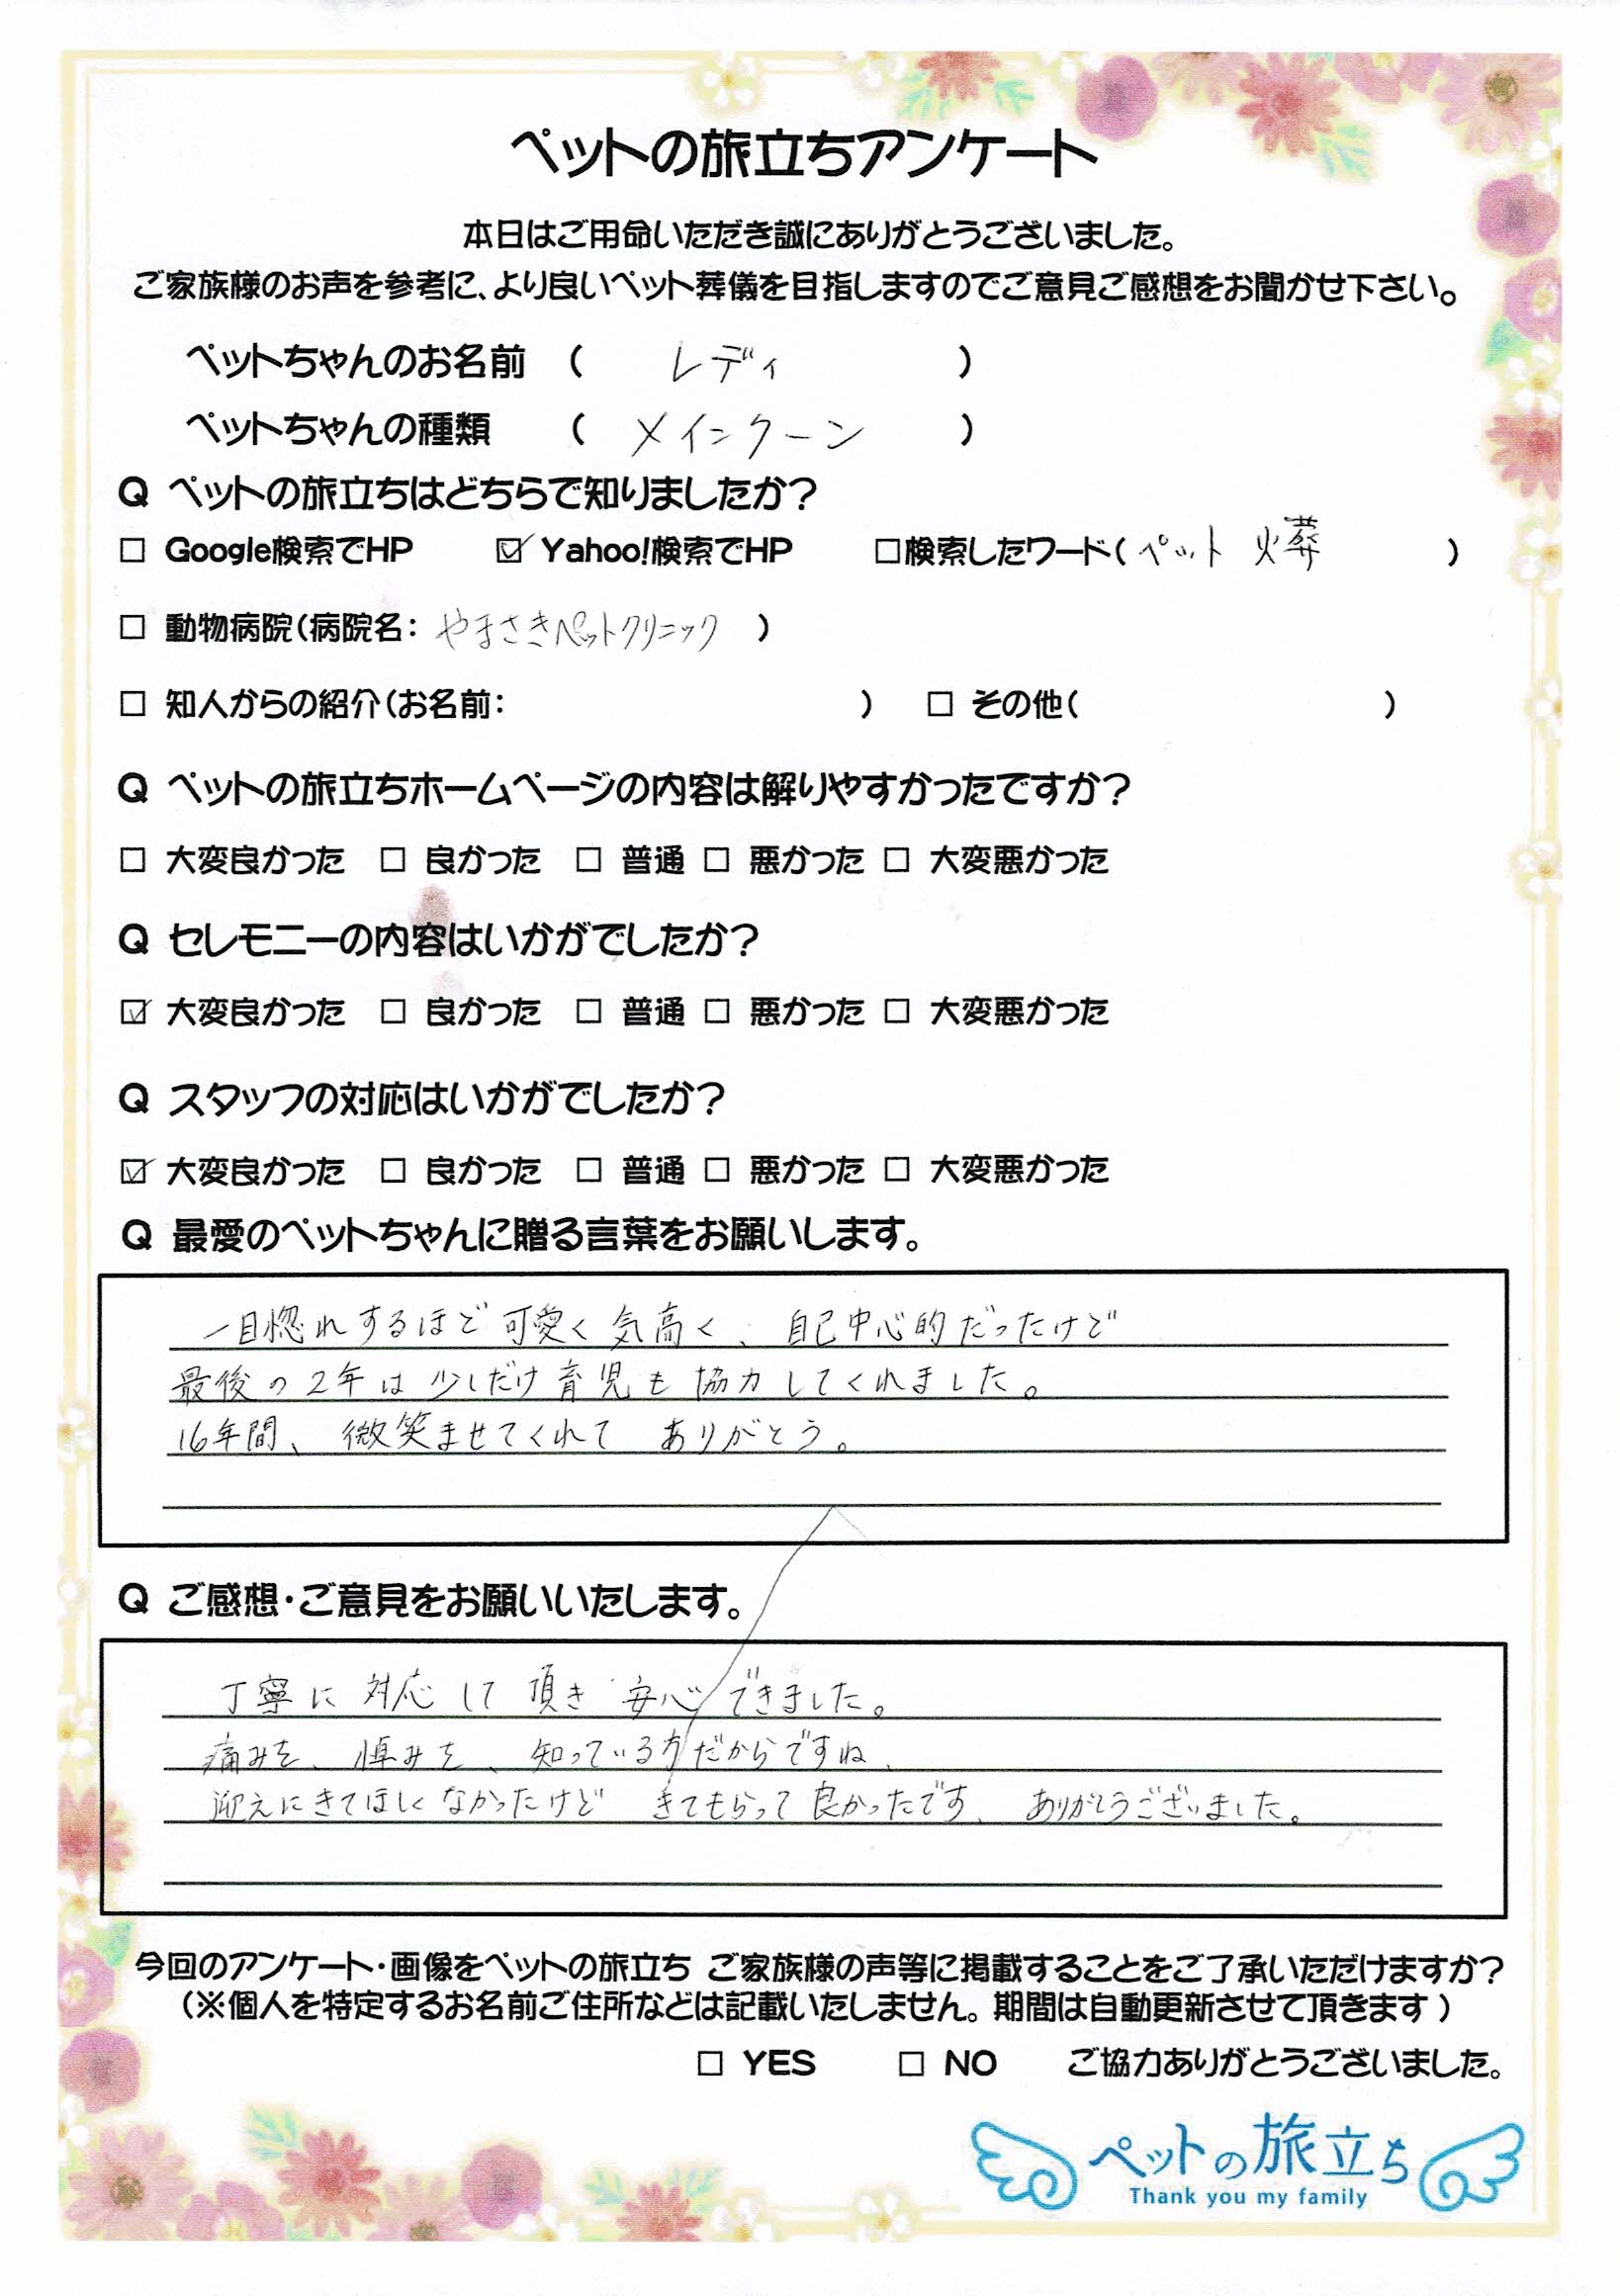 ペットの旅立ちアンケート
本日はご用命いただき誠にありがとうございました。
ご家族様のお声を参考に、より良いペット葬儀を目指しますのでご意見ご感想をお聞かせ下さい。
ペットちゃんのお名前 ( レディ )
ペットちゃんの種類 ( メインクーン )
Q ペットの旅立ちはどちらで知りましたか?
□ Google検索でHP ☑ Yahoo!検索でHP □検索したワード( ペット 火葬 )
□ 動物病院(病院名: やまさきペットクリニック )
□ 知人からの紹介(お名前: ) □ その他( )
Q ペットの旅立ちホームページの内容は解りやすかったですか?
□ 大変良かった □ 良かった □ 普通 □ 悪かった □ 大変悪かった
Q セレモニーの内容はいかがでしたか?
☑ 大変良かった □ 良かった □ 普通 □ 悪かった □ 大変悪かった
Q スタッフの対応はいかがでしたか?
☑ 大変良かった □ 良かった □ 普通 □ 悪かった □ 大変悪かった
Q 最愛のペットちゃんに贈る言葉をお願いします。
一目惚れするほど可愛く気高く、自己中心的だったけど
最後の2年は少しだけ育児も協力してくれました。
16年間、微笑ませてくれて ありがとう。
Q ご感想・ご意見をお願いいたします。
丁寧に対応して頂き 安心できました。
痛みを、悼みを、知っている方だからですね、
迎えにきてほしくなかったけど きてもらって良かったです、ありがとうございました。
今回のアンケート・画像をペットの旅立ち ご家族様の声等に掲載することをご了承いただけますか?
(※個人を特定するお名前ご住所などは記載いたしません。期間は自動更新させて頂きます)
□ YES □ NO ご協力ありがとうございました。
ペットの旅立ち
Thank you my family